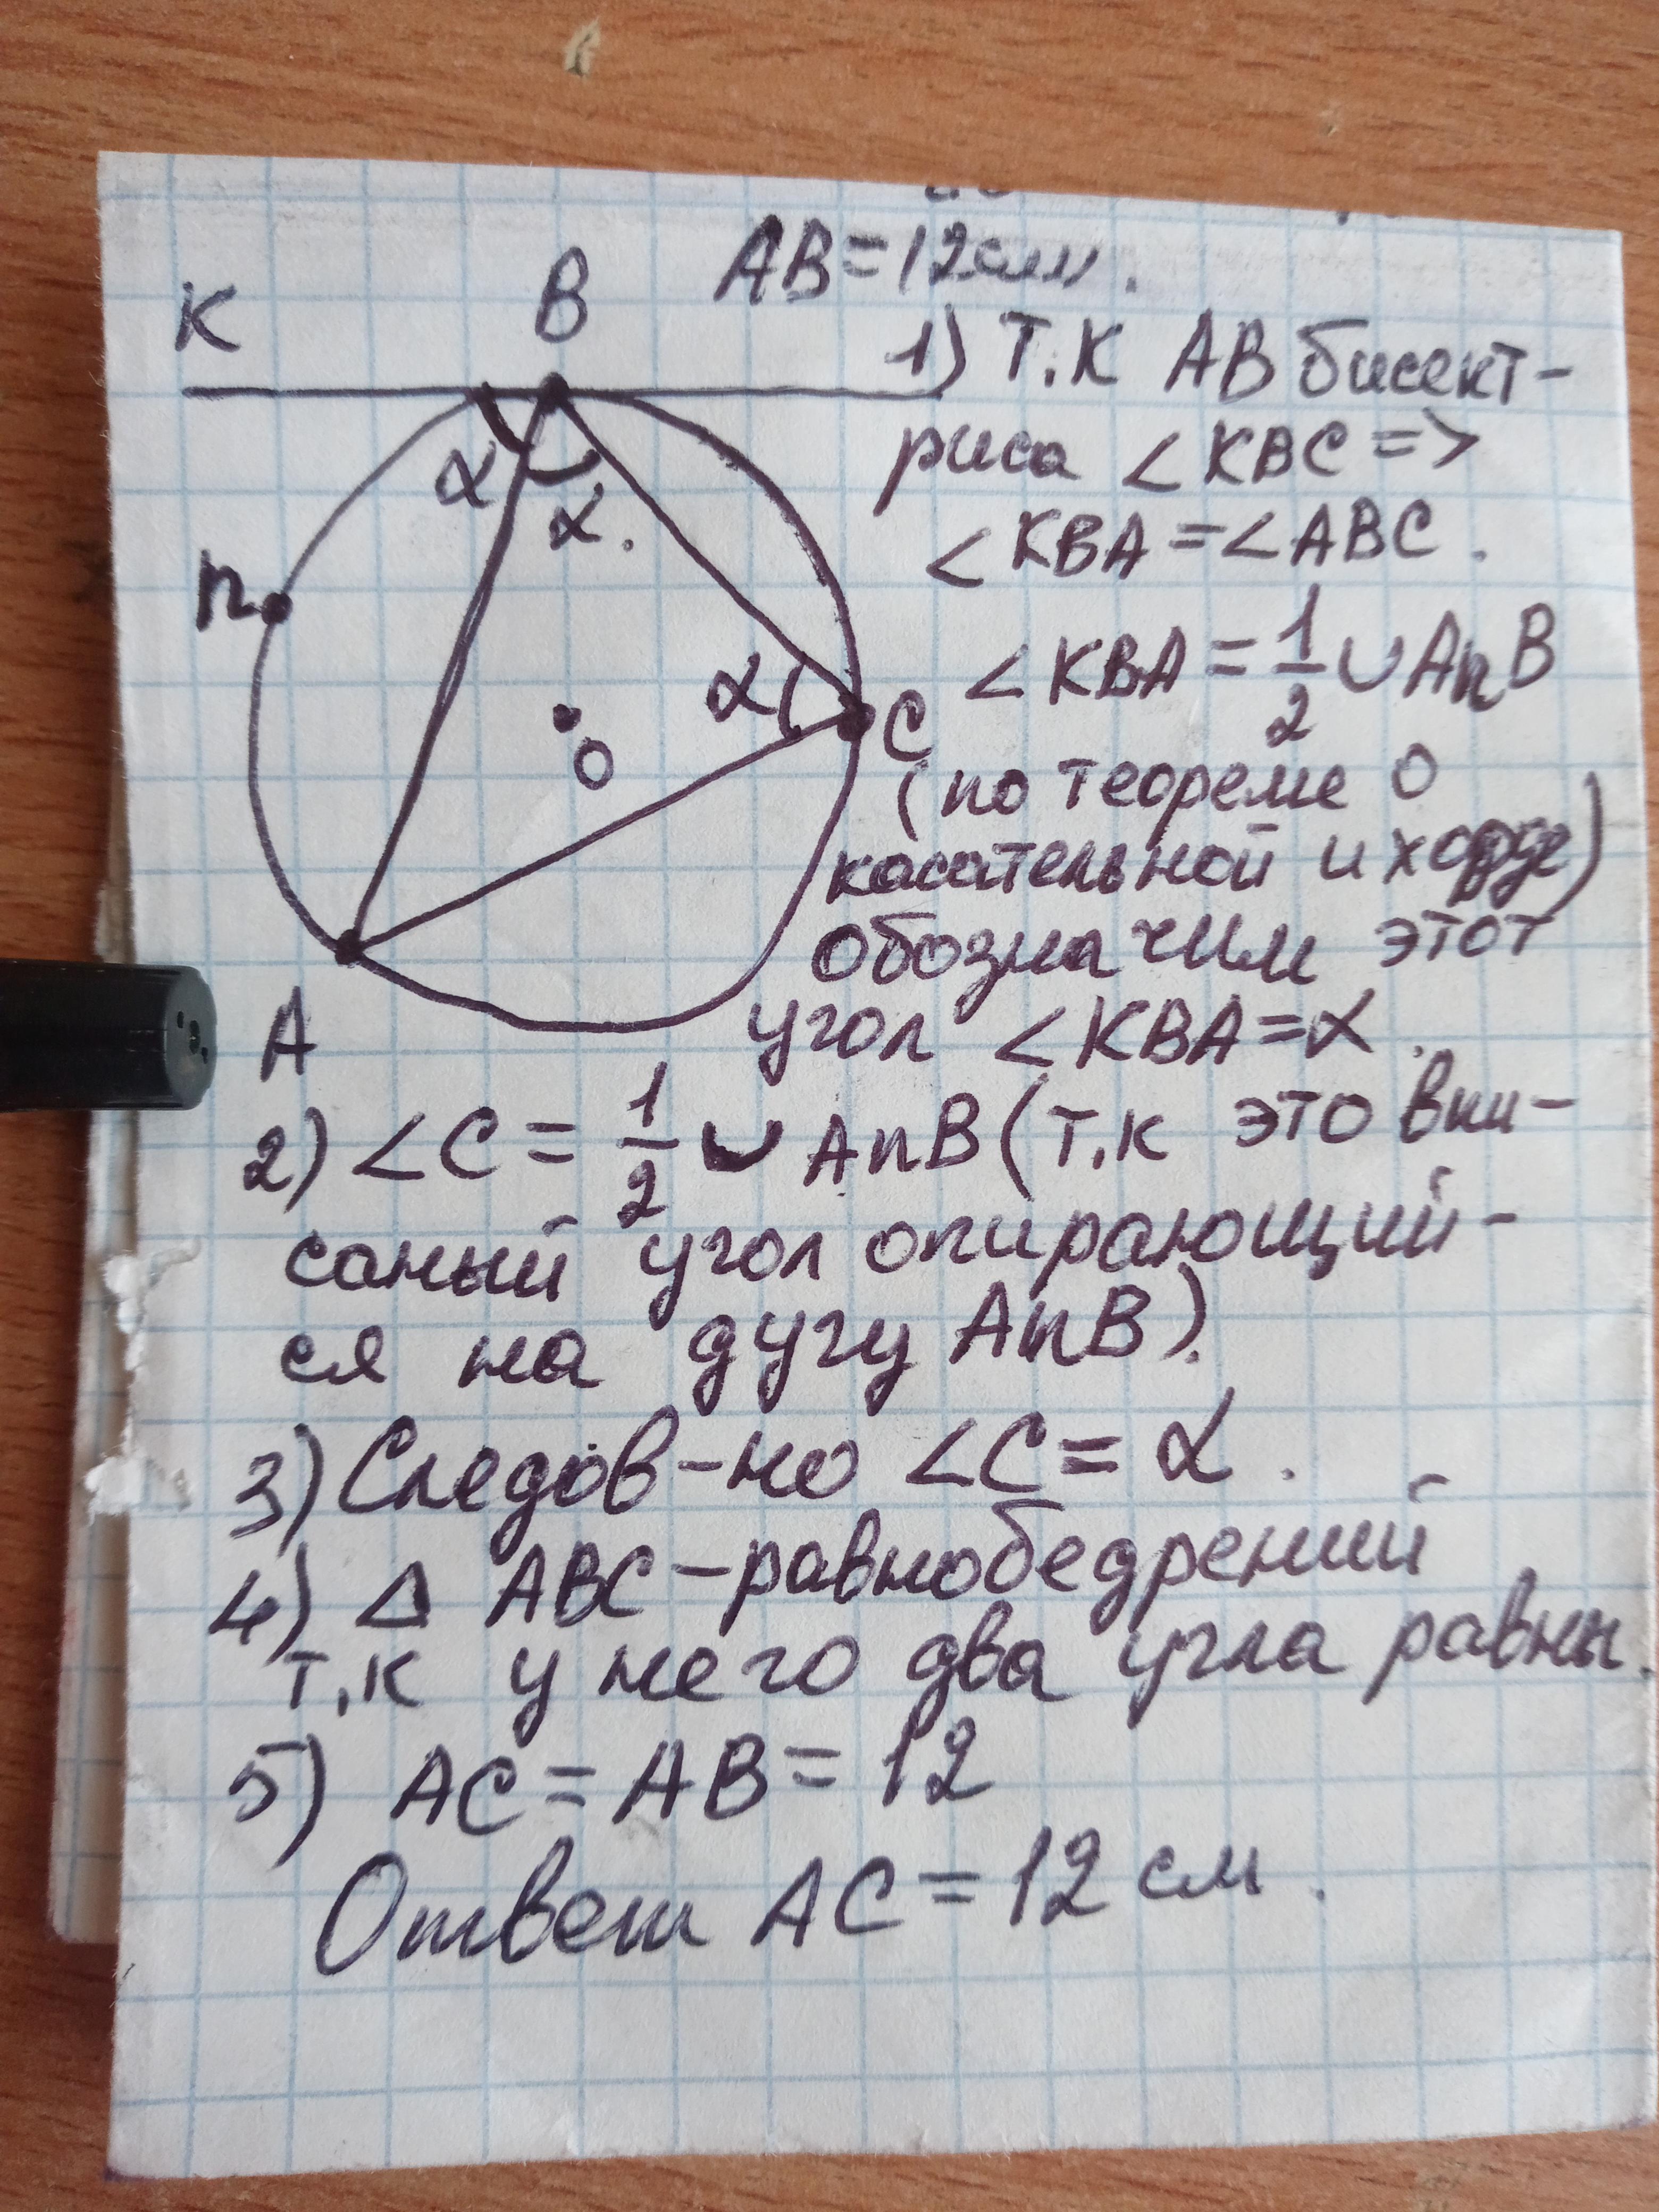 AB=12см.
K
B
1) Т.К AB бисект-
риса ∠KBC=>
∠KBA=∠ABC.
α
α.
n
∠KBA=1/2∪AnB
α
C
O
(по теореме о
касательной и хорде)
обозначим этот
угол ∠KBA=α.
A
2) ∠C=1/2∪AnB(т.к это впи-
саный угол опирающий-
ся на дугу AnB).
3) Следов-но ∠C=α.
4) Δ ABC-равнобедрений
т.к у него два угла равны.
5) AC=AB=12
Ответ AC=12 см.